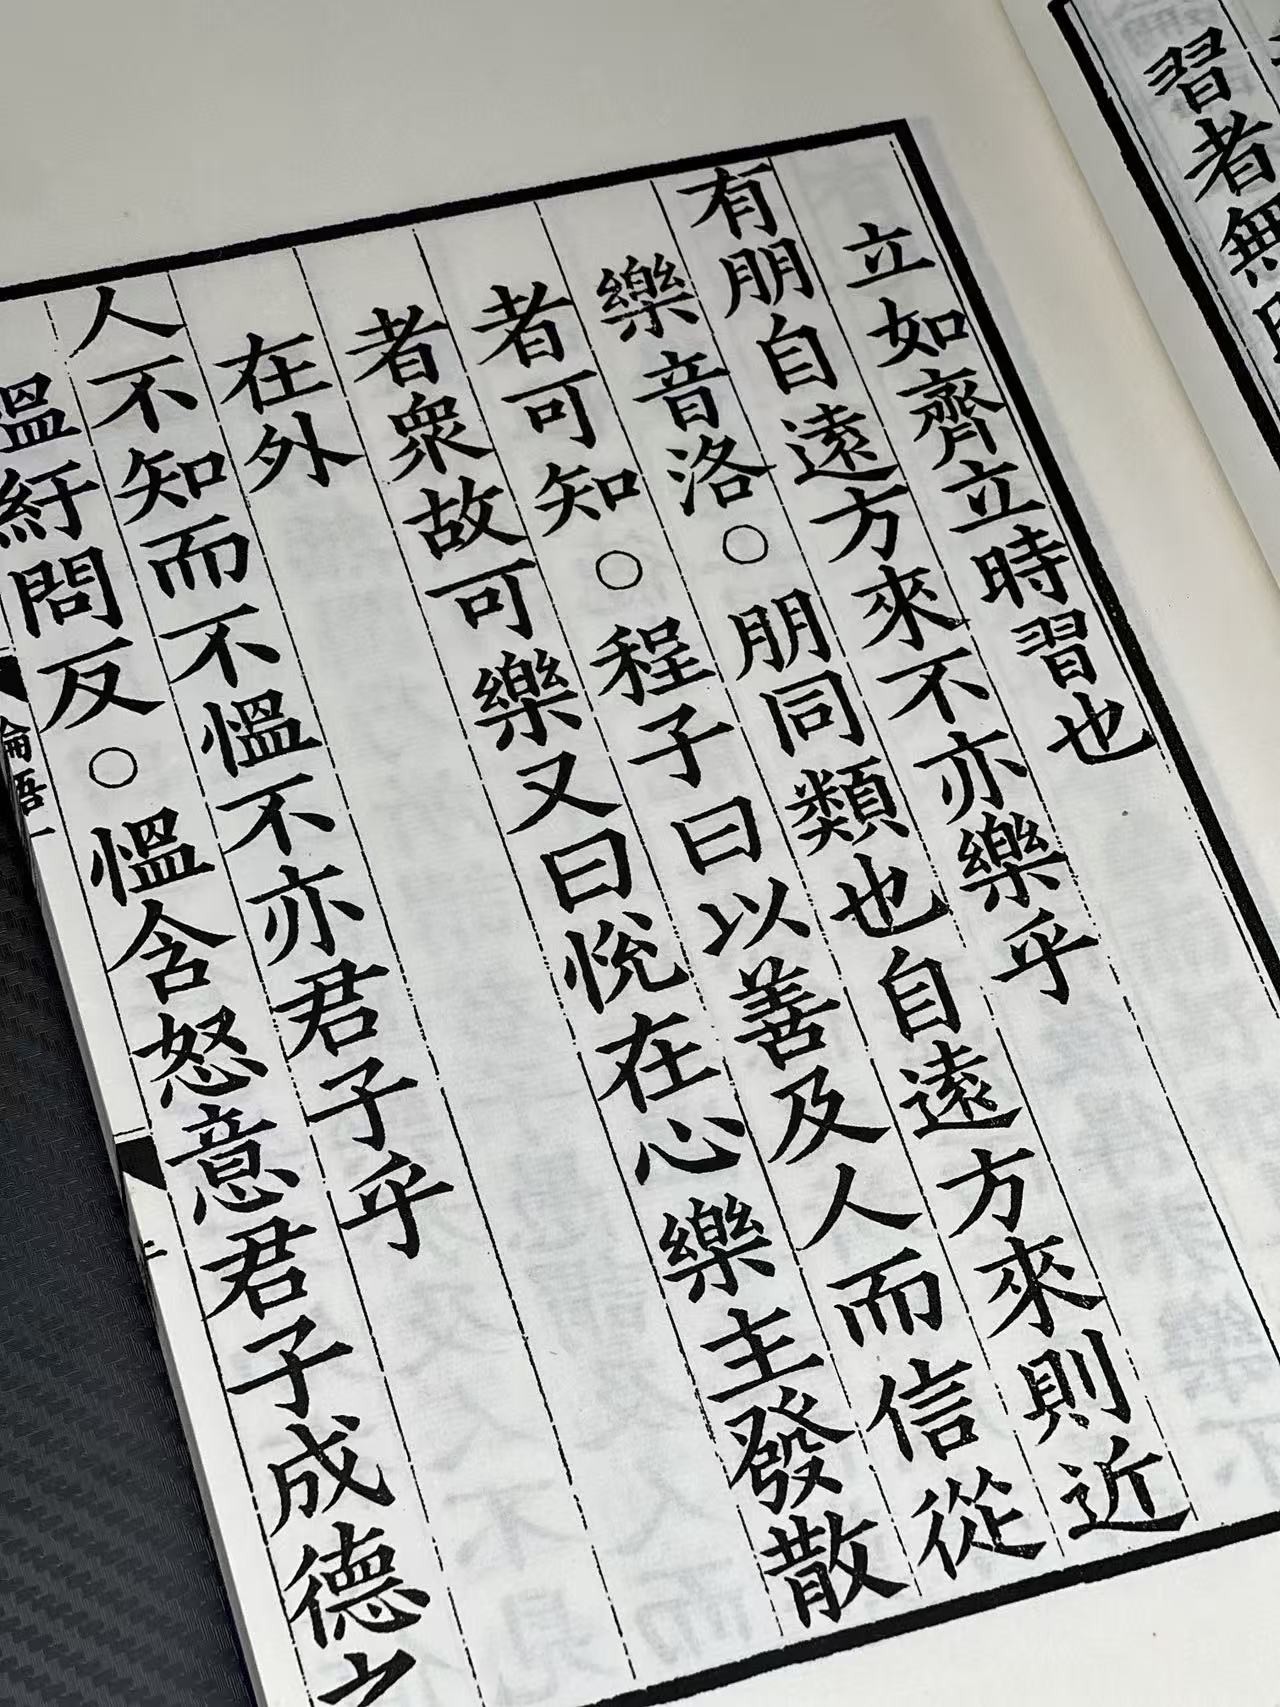 習者無
立如齊立時習也
有朋自遠方來不亦樂乎
樂音洛○朋同類也自遠方來則近
者可知○程子曰以善及人而信從
者衆故可樂又曰悅在心樂主發散
在外
人不知而不慍不亦君子乎
慍紆問反○慍含怒意君子成德之
論語一
二